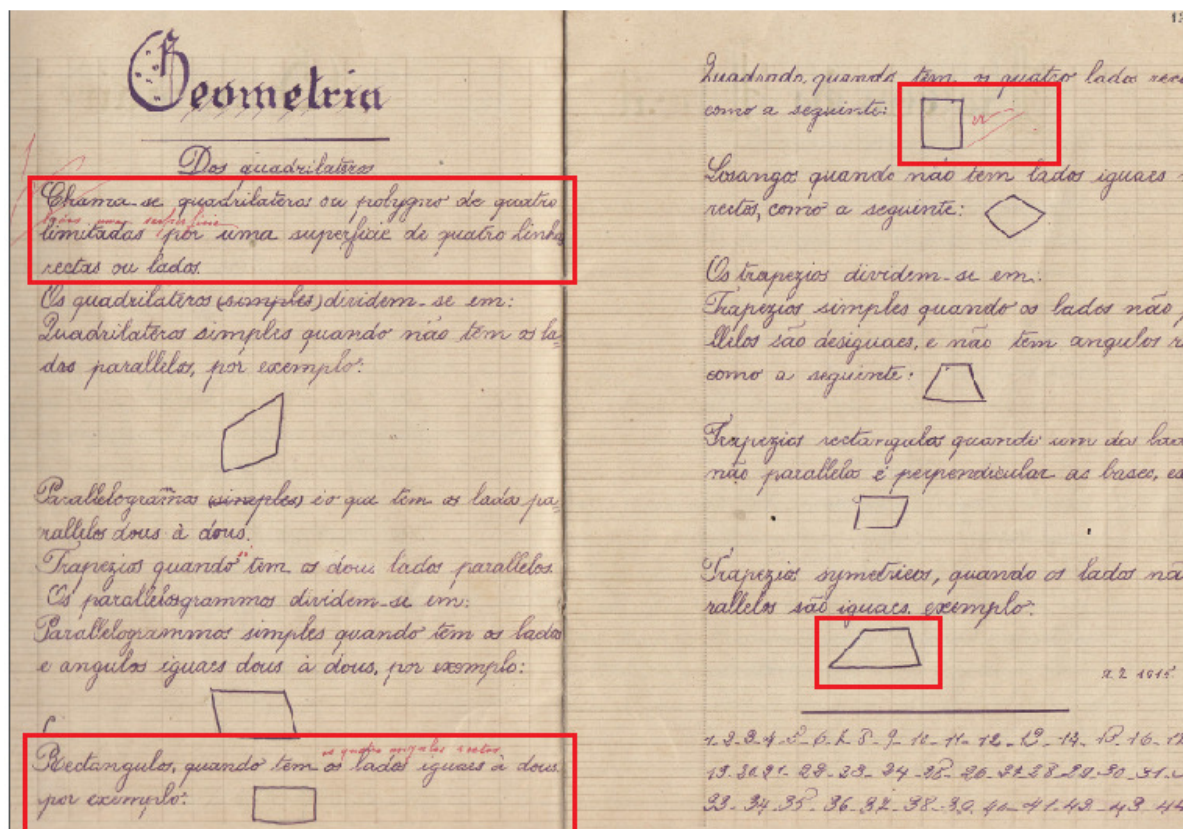 Geometria
Dos quadrilateros
Chama-se quadrilateros ou polygno de quatro
limitadas por uma superficie de quatro linhas
rectas ou lados.
Os quadrilateros (simples) dividem-se em:
Quadrilateros simples quando não têm os la-
dos parallelos, por exemplo:
Parallelogramos (simples) é o que tem os lados pa-
rallelos dous à dous.
Trapezios quando tem os dous lados parallelos.
Os parallelogrammos dividem-se em:
Parallelogrammos simples quando têm os lados
e angulos iguaes dous à dous, por exemplo:
os quatro angulos rectos
Rectangulos, quando tem os lados iguaes à dous
por exemplo:
13
Quadrado, quando tem os quatro lados
como a seguinte:
Losango quando não tem lados iguaes
rectos, como a seguinte:
Os trapezios dividem-se em:
Trapezios simples quando os lados não
llelos são desiguaes, e não tem angulos
como a seguinte:
Trapezios rectangulos quando um dos
não parallelo é perpendicular as bases,
Trapezios symetricos, quando os lados
rallelos são iguaes. exemplo:
1-2-3-4-5-6-7-8-9-10-11-12-13-14-15-16-
19-20-21-22-23-24-25-26-27-28-29-30-31-
33-34-35-36-37-38-39-40-41-42-43-44